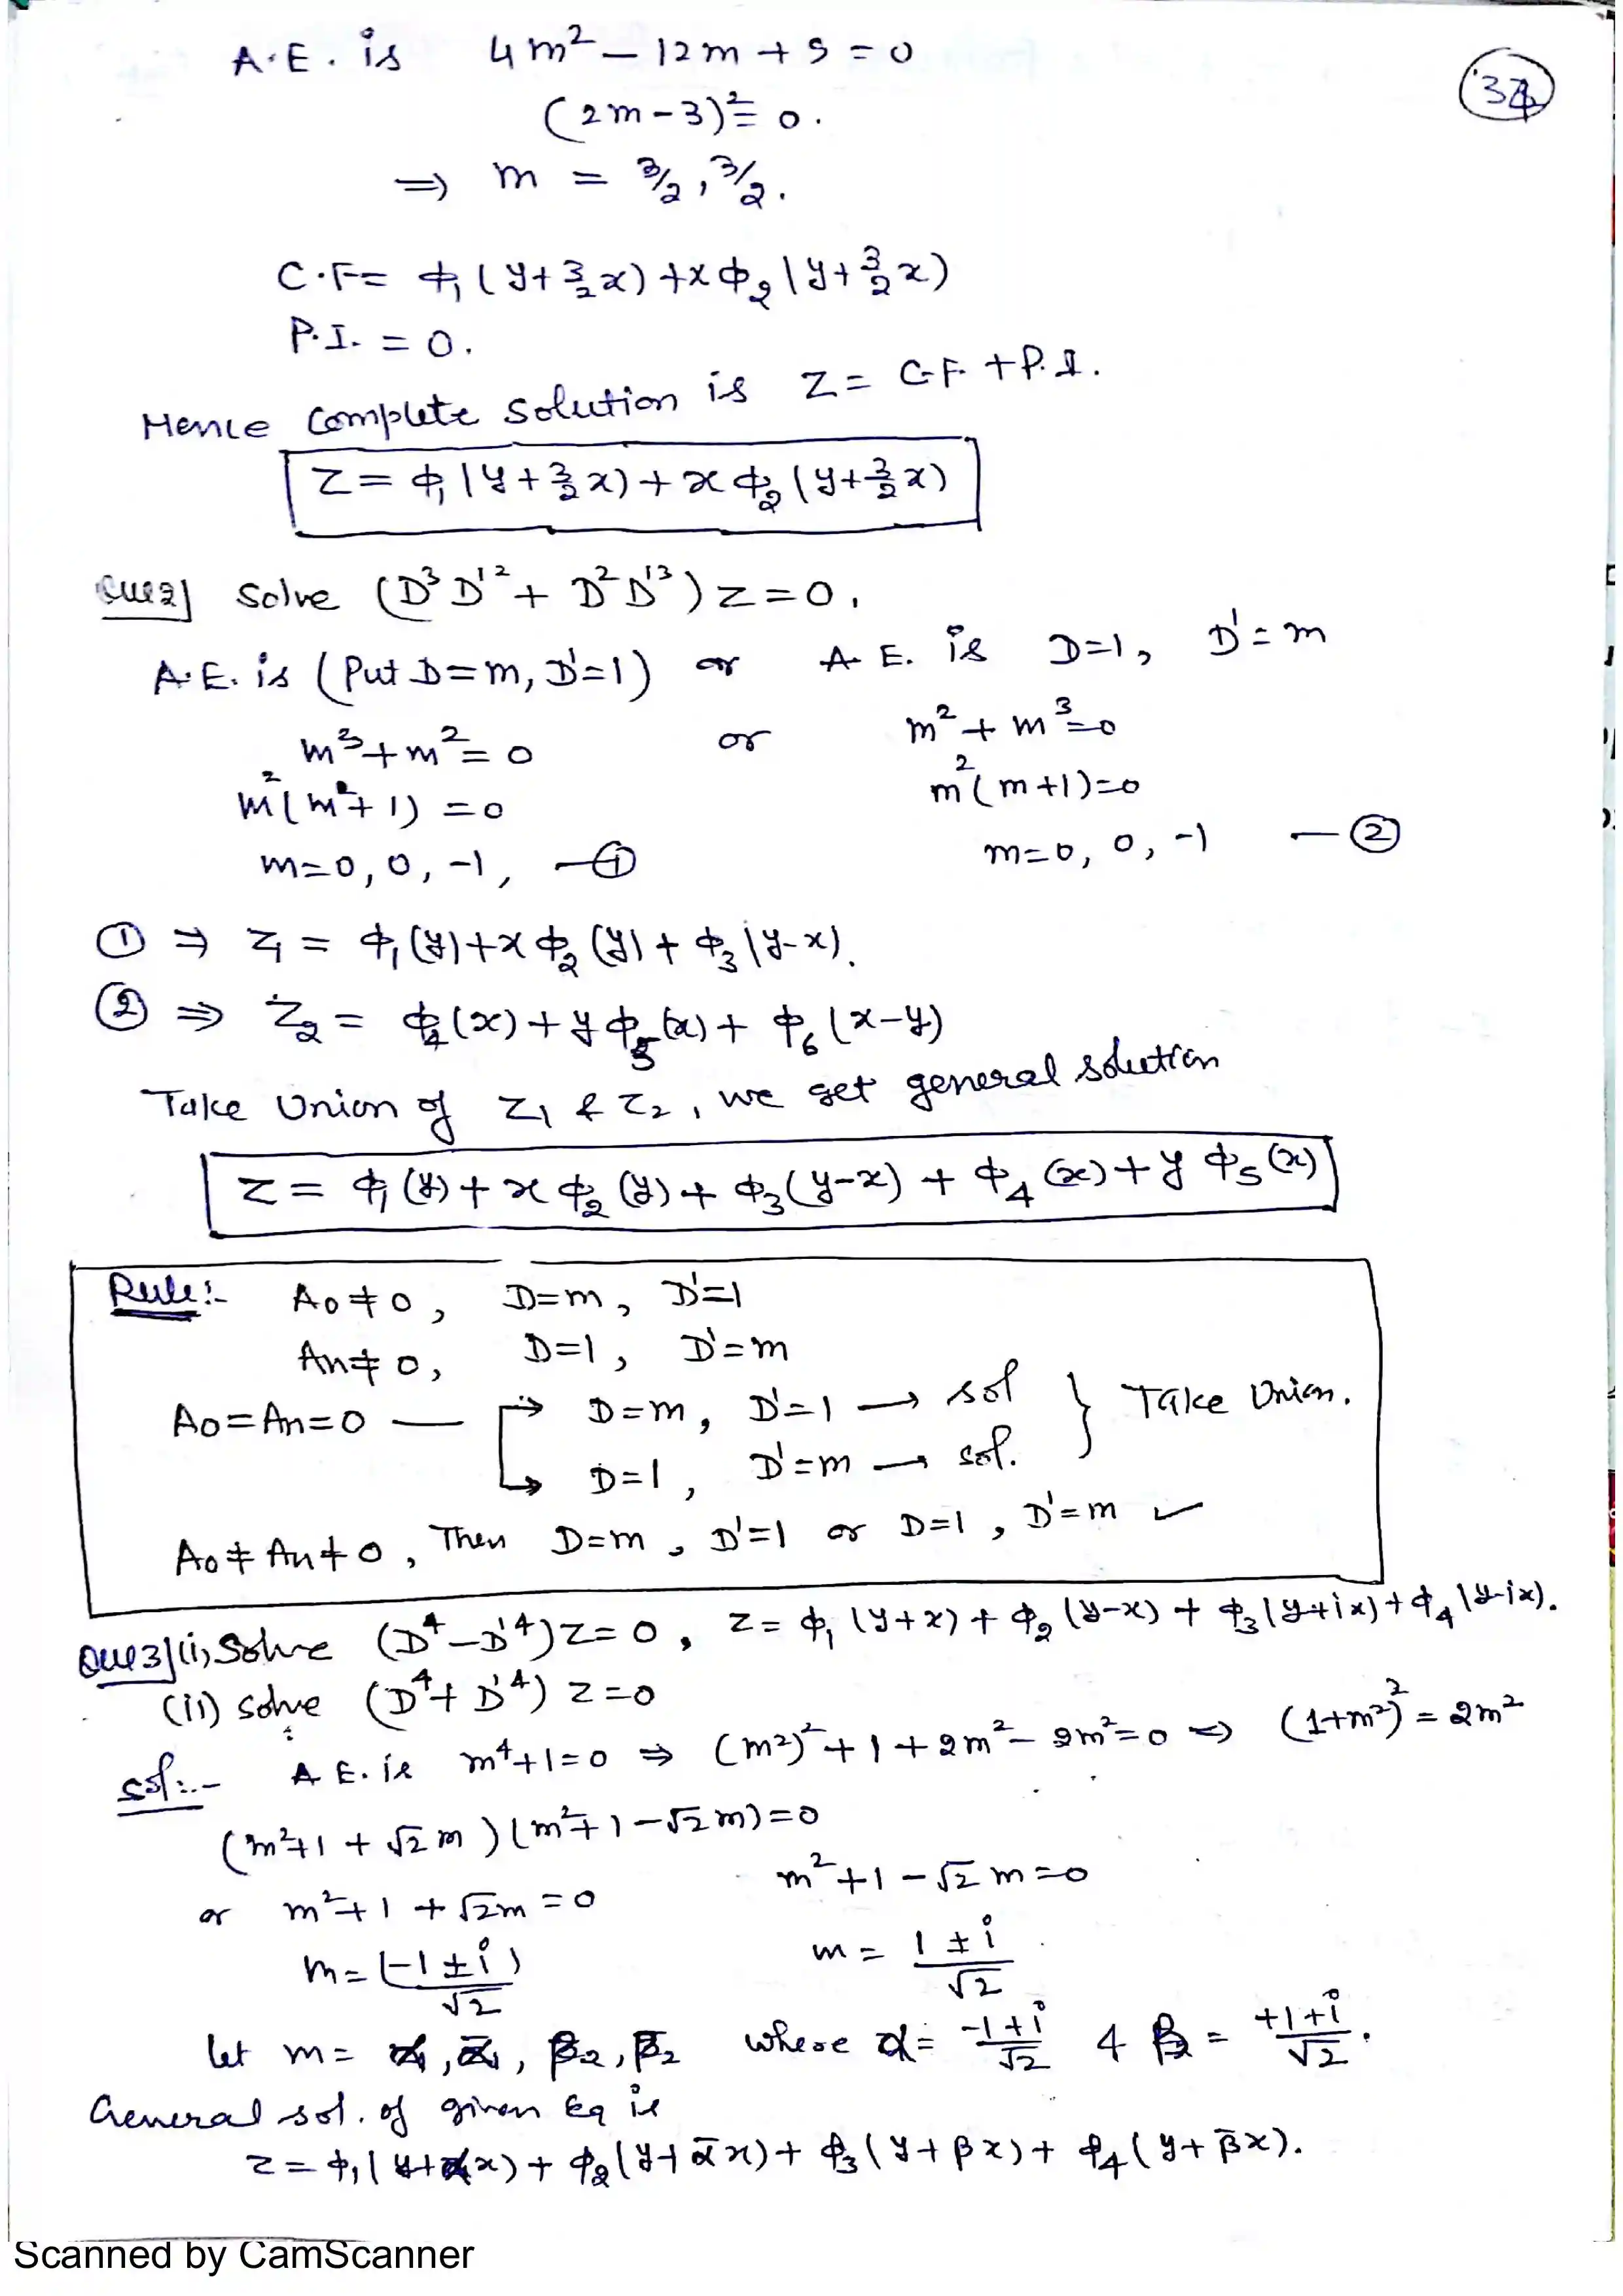 A.E. is 4m² – 12m + 9 = 0
34
(2m – 3)² = 0.
⇒ m = 3/2, 3/2.
C.F = ϕ₁(y + 3/2 x) + xϕ₂(y + 3/2 x)
P.I. = 0.
Hence Complete solution is Z = C.F. + P.I.
Z = ϕ₁(y + 3/2 x) + xϕ₂(y + 3/2 x)
Que2] Solve (D³D'² + D²D'³) z = 0,
A.E. is (Put D=m, D'=1) or A.E. is D=1, D'=m
m³ + m² = 0 or m² + m³ = 0
m²(m + 1) = 0 m²(m+1) = 0
m = 0, 0, -1, —① m = 0, 0, -1 —②
① ⇒ z₁ = ϕ₁(y) + xϕ₂(y) + ϕ₃(y-x).
② ⇒ Z₂ = ϕ₄(x) + yϕ₅(x) + ϕ₆(x-y)
Take Union of z₁ & z₂, we get general solution
Z = ϕ₁(y) + xϕ₂(y) + ϕ₃(y-x) + ϕ₄(x) + yϕ₅(x)
Rule:- A₀ ≠ 0, D=m, D'=1
An ≠ 0, D=1, D'=m
A₀ = An = 0 — → D=m, D'=1 → sol } Take Union.
↳ D=1, D'=m → sol.
A₀ ≠ An ≠ 0, Then D=m, D'=1 or D=1, D'=m ✓
Que3](i) Solve (D⁴ – D'⁴)Z = 0, z = ϕ₁(y+x) + ϕ₂(y-x) + ϕ₃(y+ix) + ϕ₄(y-ix).
(ii) solve (D⁴ + D'⁴) z = 0
sol:- A.E. is m⁴+1=0 ⇒ (m²)² + 1 + 2m² – 2m² = 0 ⇒ (1+m²)² = 2m²
(m²+1 + √2 m)(m²+1 – √2 m) = 0
or m²+1 + √2m = 0 m²+1 – √2 m = 0
m = (-1 ± i)/√2 m = (1 ± i)/√2
let m = α, ᾱ, β, β̄ where α = (-1+i)/√2 & β = (+1+i)/√2.
General sol. of given Eq is
z = ϕ₁(y+αx) + ϕ₂(y+ᾱx) + ϕ₃(y+βx) + ϕ₄(y+β̄x).
Scanned by CamScanner